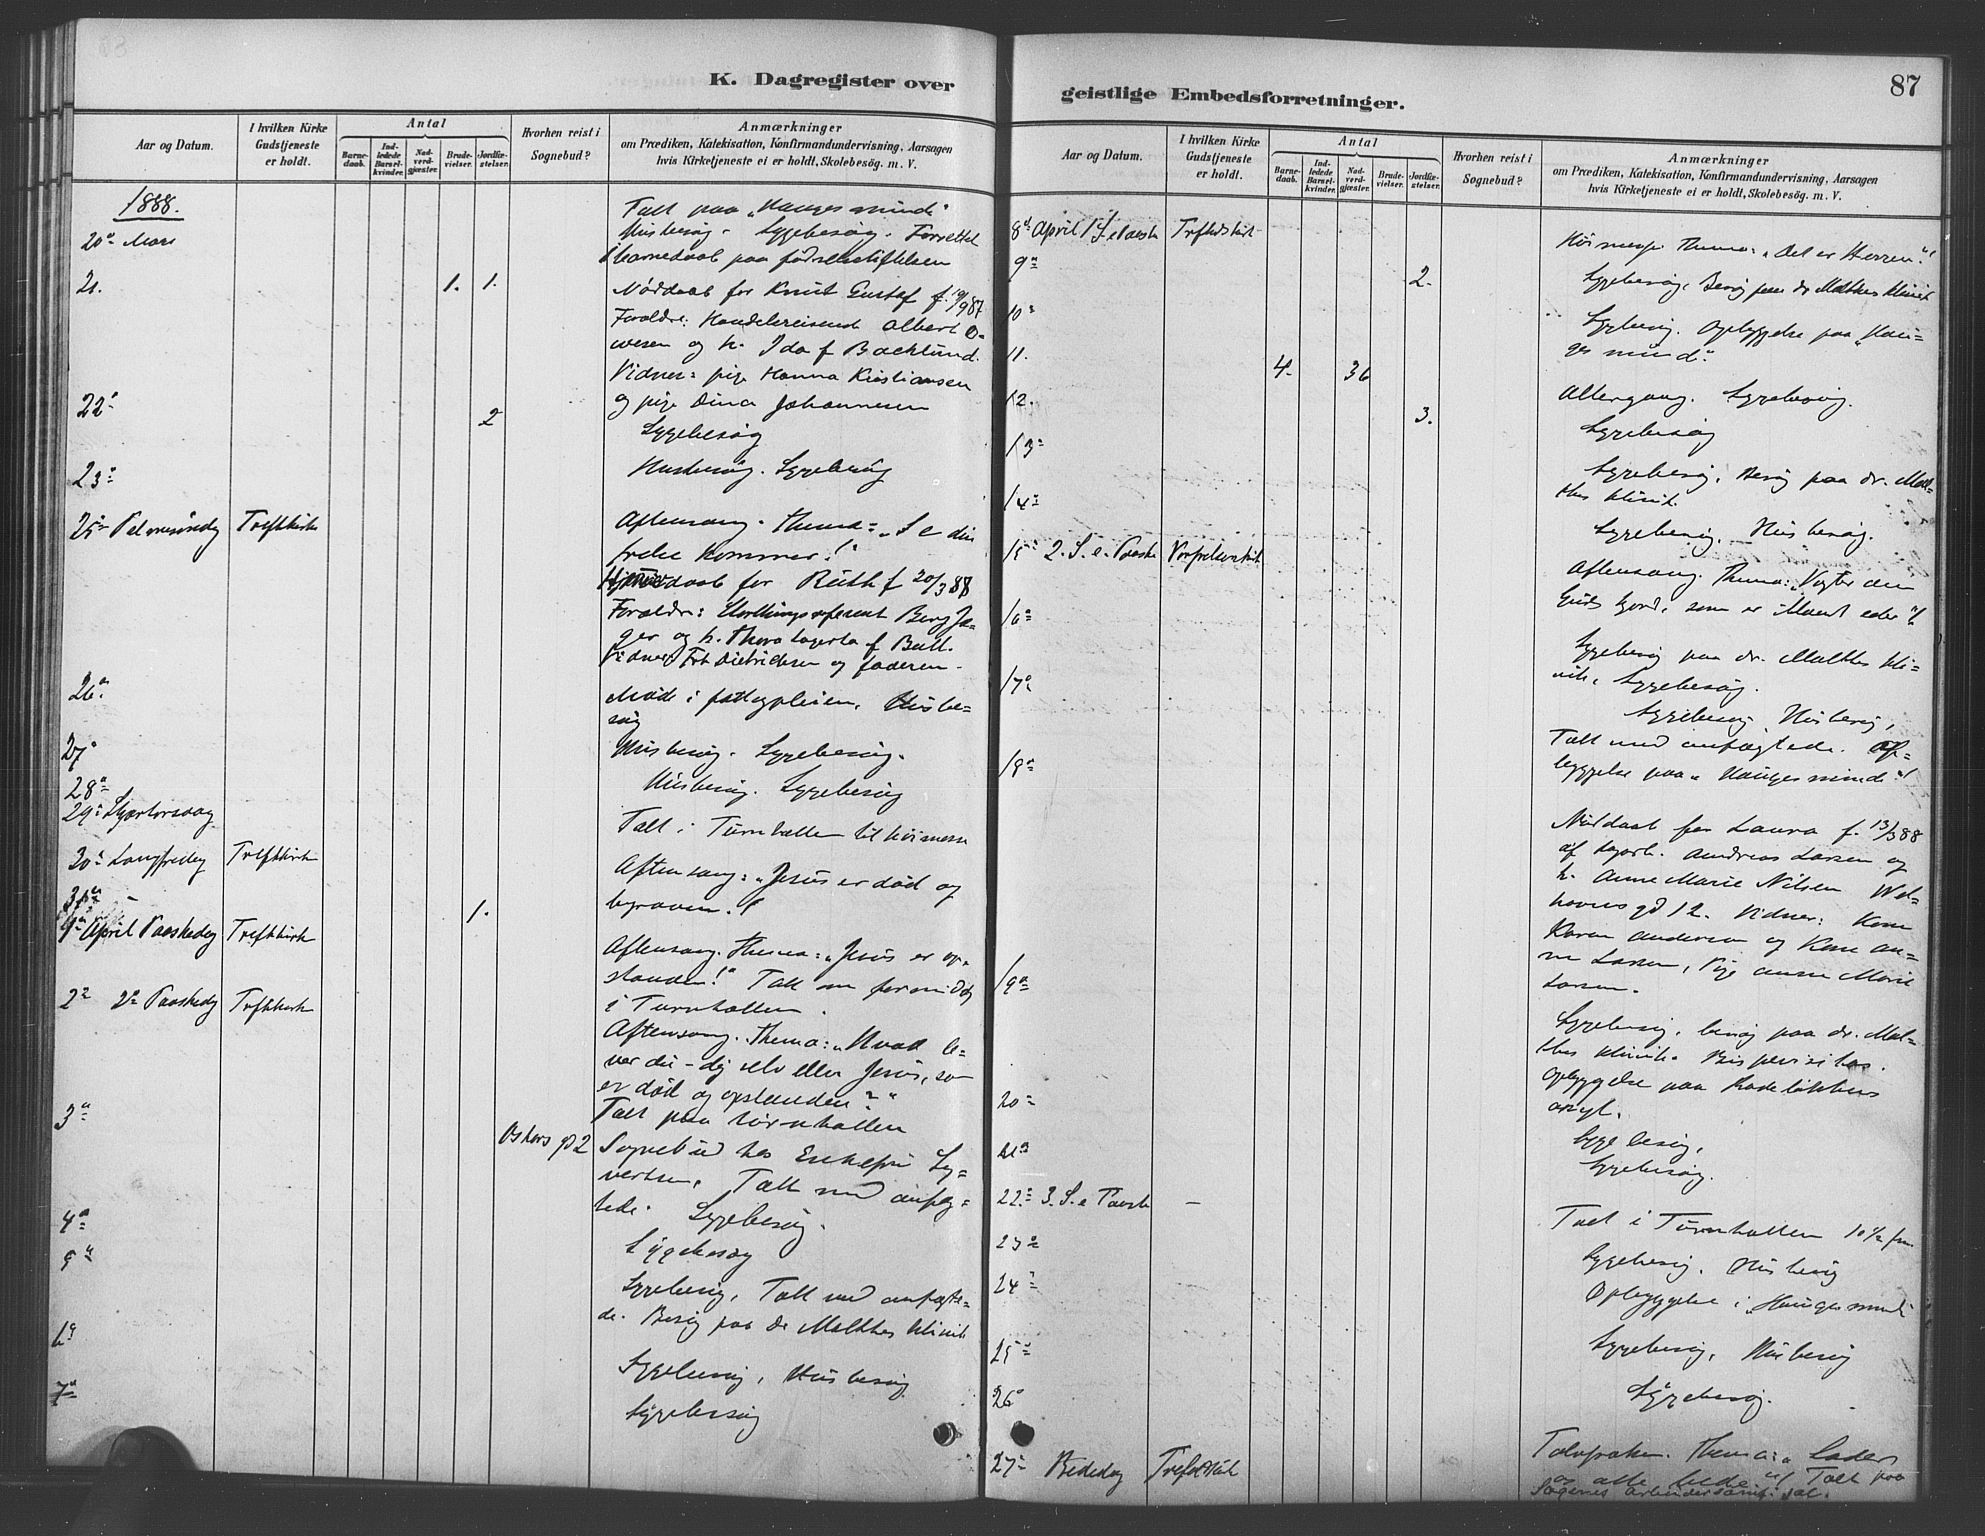 K. Dagregister over
Aar og Datum.
I hvilken Kirke Gudstjeneste er holdt.
Antal
Barnedaab.
Indledede Barselkvinder.
Nadverdgjæster.
Brudevielser.
Jordfæstelser.
Hvorhen reist i Sognebud?
Anmærkninger
om Prædiken, Katekisation, Konfirmandundervisning, Aarsagen
hvis Kirketjeneste ei er holdt, Skolebesög. m. V.
1888.
Talt paa „Hauges minde“
20de Mars
Husbesøg. Sygebesøg. Forrettet
1 barnedaab paa fødselsstiftelsen
21. 1. 1.
Nøddaab for Knut Gustaf f. 19/9 87
Forældre: Handelsreisende Albert
og h. Ida f Backlund.
Vidner: pige Hanna Kristiansen
22 2
og pige Dina Johannesen
Sygebesøg
23
Husbesøg. Sygebesøg
25 Palmesøndag Treftkirk
Aftensang. Thema: „Se din
frelse kommer!“
Hjemmedaab for Ruth f 20/3 88
Forældre: Stortingsreferent Berg Jæ-
ger og h. Thora f Bull.
Vidner: Dietrichsen og faderen.
26
Møde i fattigpleien. Husbe-
søg
27
Husbesøg. Sygebesøg.
28
Husbesøg. Sygebesøg
29 Skjærtorsdag
Talt i Turnhallen til høimesse
30 Langfredag Treftkirk
Aftensang: „Jesus er død og
begraven!“
31 1.
1 April Paaskedag Treftkirk
Aftensang. Thema: „Jesus er op-
standen!“ Talt om formiddag
i Turnhallen.
2 2 Paaskedag Treftkirk
Aftensang. Thema: „Hvad le-
ver du – dig selv eller Jesus, som
er død og opstanden?“
Talt paa turnhallen
3 Oskars gd 2
Sognebud hos Enkefru Sy-
vertsen. Talt med anfæg-
tede. Sygebesøg.
4
Sygebesøg
5
Sygebesøg, Talt med anfægte-
de. Besøg paa dr Malthes klinik
6
Sygebesøg, Husbesøg
7
Sygebesøg
87
geistlige Embedsforretninger.
Aar og Datum.
I hvilken Kirke Gudstjeneste er holdt.
Antal
Barnedaab.
Indledede Barselkvinder.
Nadverdgjæster.
Brudevielser.
Jordfæstelser.
Hvorhen reist i Sognebud?
Anmærkninger
om Prædiken, Katekisation, Konfirmandundervisning, Aarsagen
hvis Kirketjeneste ei er holdt, Skolebesög. m. V.
8 April 1 S. e Paaske Treftkirk
Høimesse Thema: „Det er Herren“!
9 2.
Sygebesøg, Besøg paa dr Malthes klinik
10
Sygebesøg. Opbyggelse paa „Hau-
ges minde“.
11. 4. 36
Altergang. Sygebesøg.
12. 3.
Sygebesøg
13
Sygebesøg, Besøg paa dr. Mal-
thes klinik.
14
Sygebesøg, Husbesøg.
15 2. S. e. Paaske
Aftensang. Thema: „Vogter den
Guds hjord, som er iblandt eder“!
16
Sygebesøg paa dr. Malthes kli-
nik, Sygebesøg.
17
Sygebesøg Husbesøg,
Talt med anfægtede. Op-
byggelse paa „Hauges minde“!
18
Nøddaab for Laura f. 13/3 88
af Andreas Larsen og
h. Anne Marie Nilsen Wel-
havens gd 12. Vidner: Kone
Karen Andersen og Kone An-
ne Larsen, Pige Anne Marie
Larsen.
19
Sygebesøg, besøg paa dr. Mal-
thes klinik. Bispevisitas.
Opbyggelse paa Rodeløkkens
asyl.
20
Sygebesøg,
21
Sygebesøg.
22 3. S. e Paaske –
Talt i Turnhallen 10½ fm.
23
Sygebesøg. Husbesøg
24
Opbyggelse i „Hauges minde“
25
Sygebesøg, Husbesøg
26
Sygebesøg.
27 Bededag
Thema: „Lader
Talt paa
Sagenes arbeidersamf. sal.